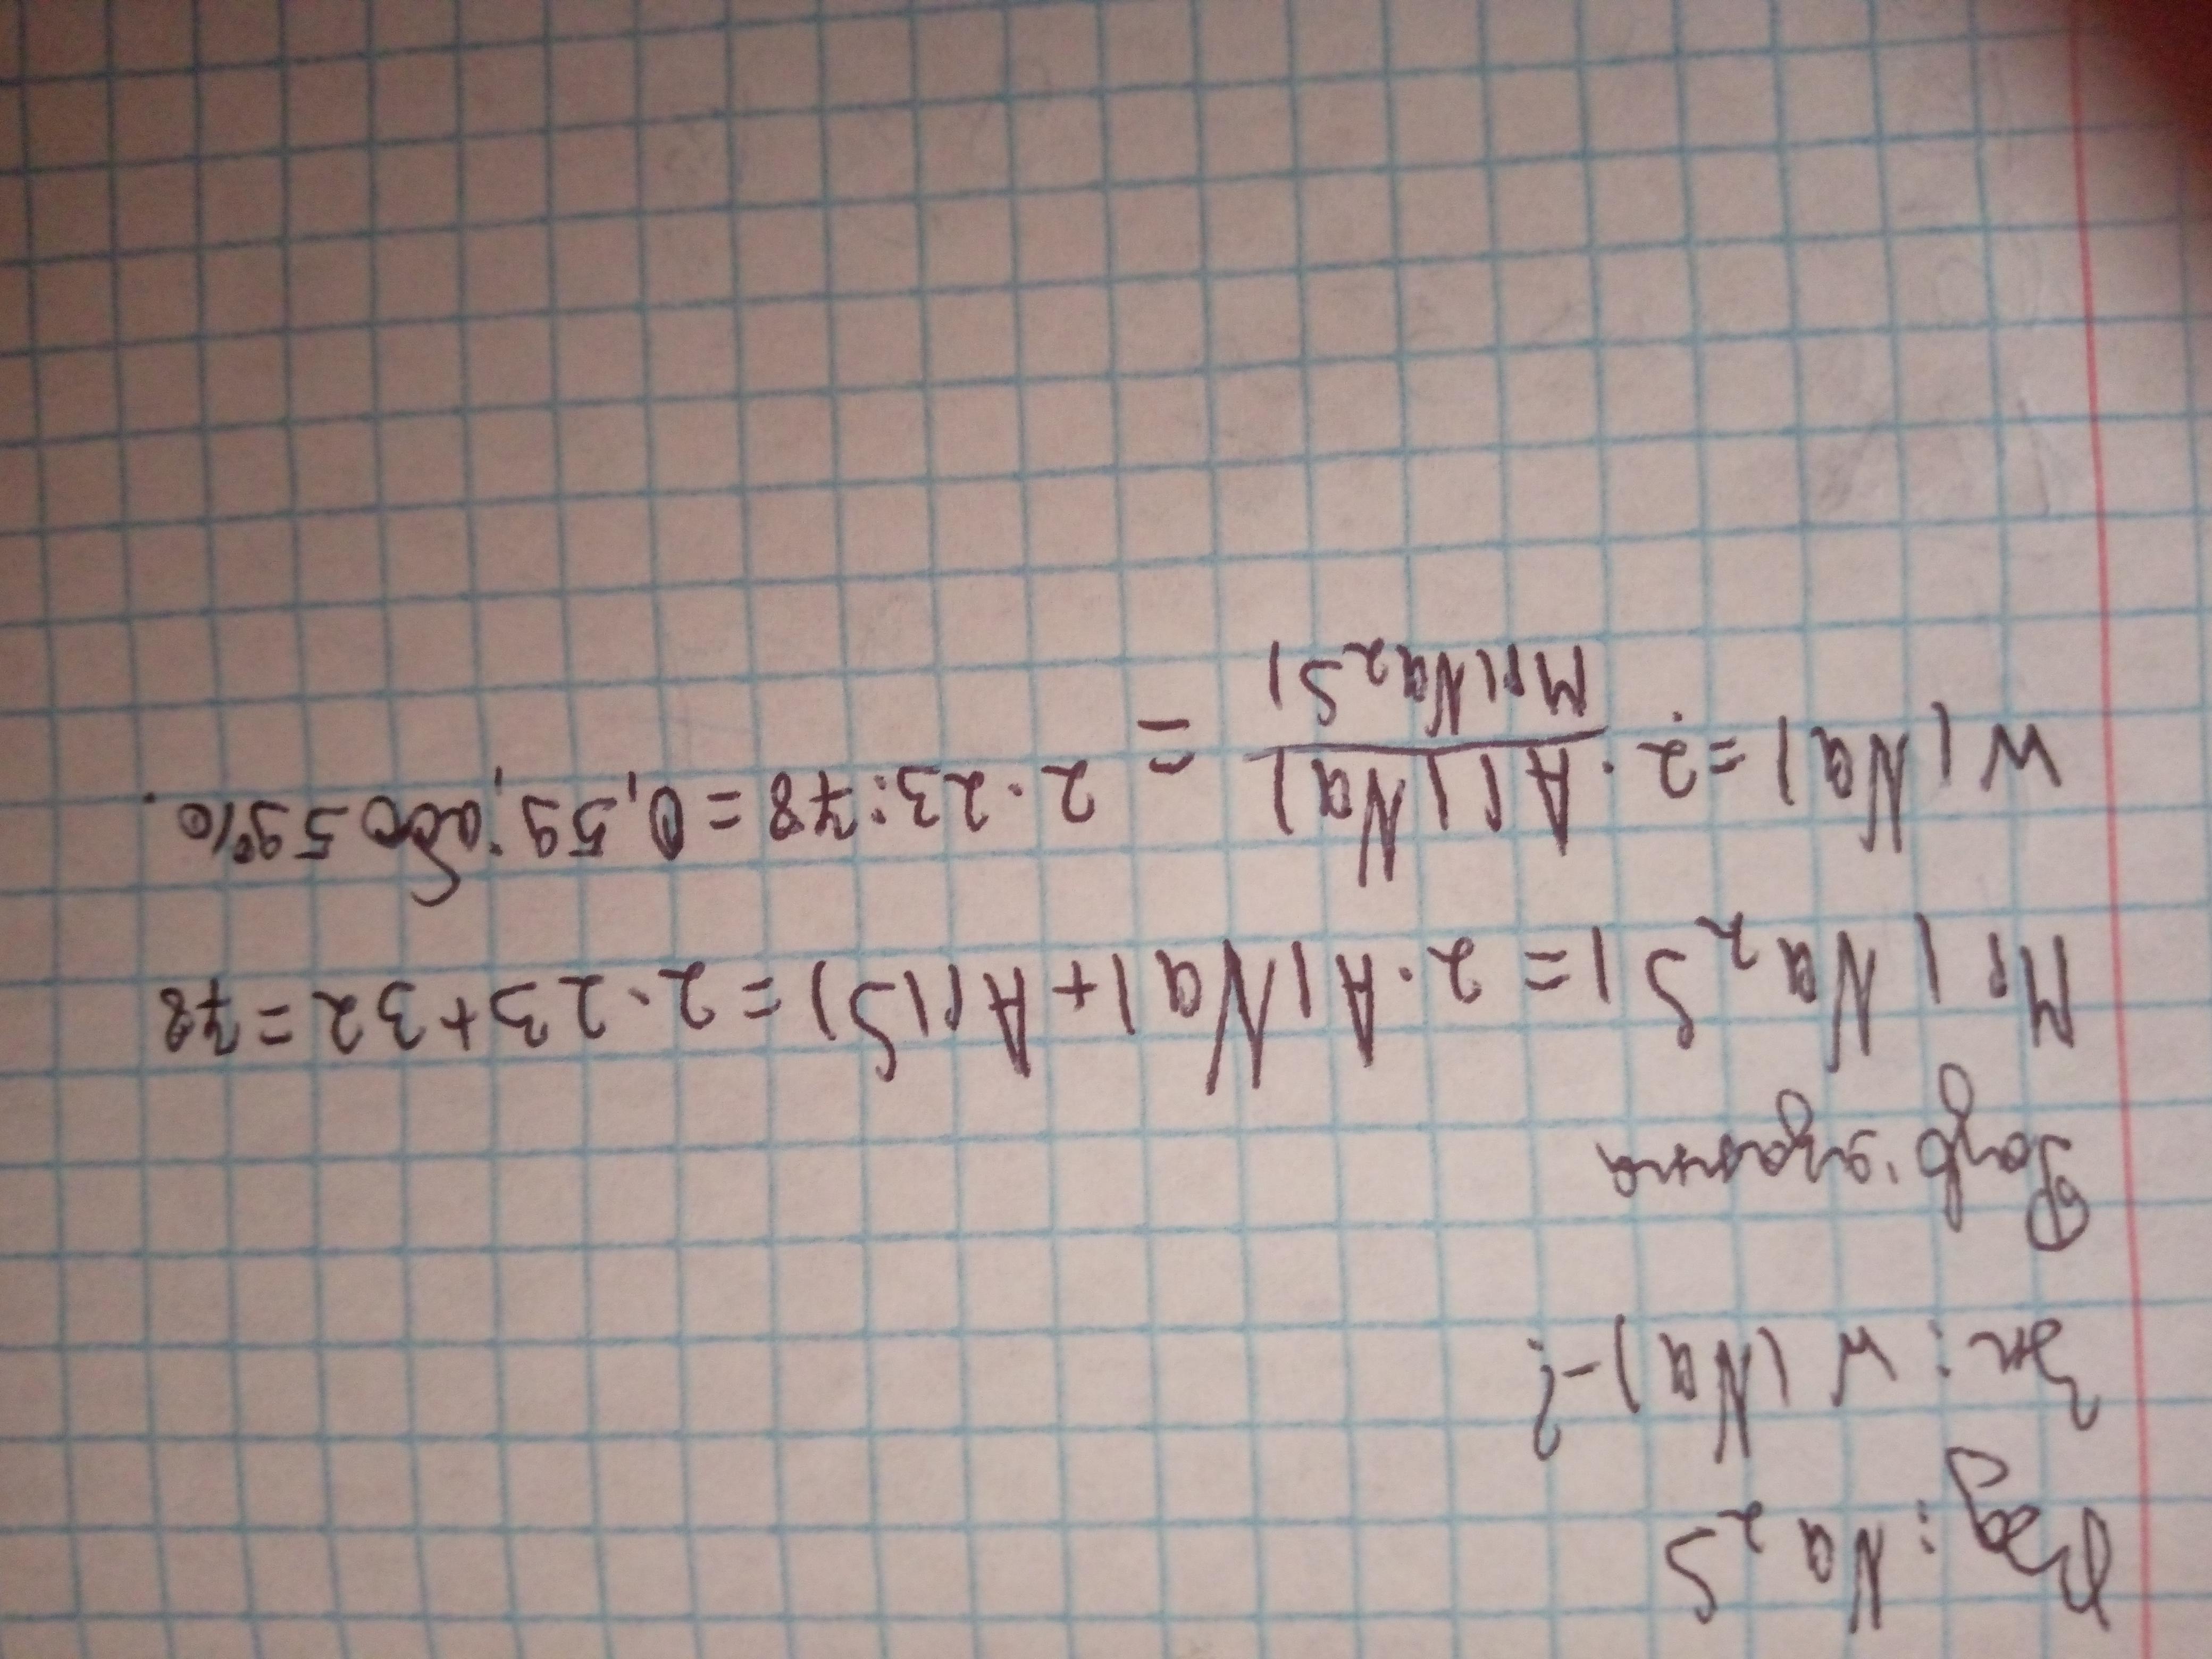 Дод: Na2S
Зн: W(Na)-?
Розв'язання
Mr(Na2S)=2·A(Na)+Ar(S)=2·23+32=78
W(Na)=2·Ar(Na)/Mr(Na2S)=2·23:78=0,59; або 59%.